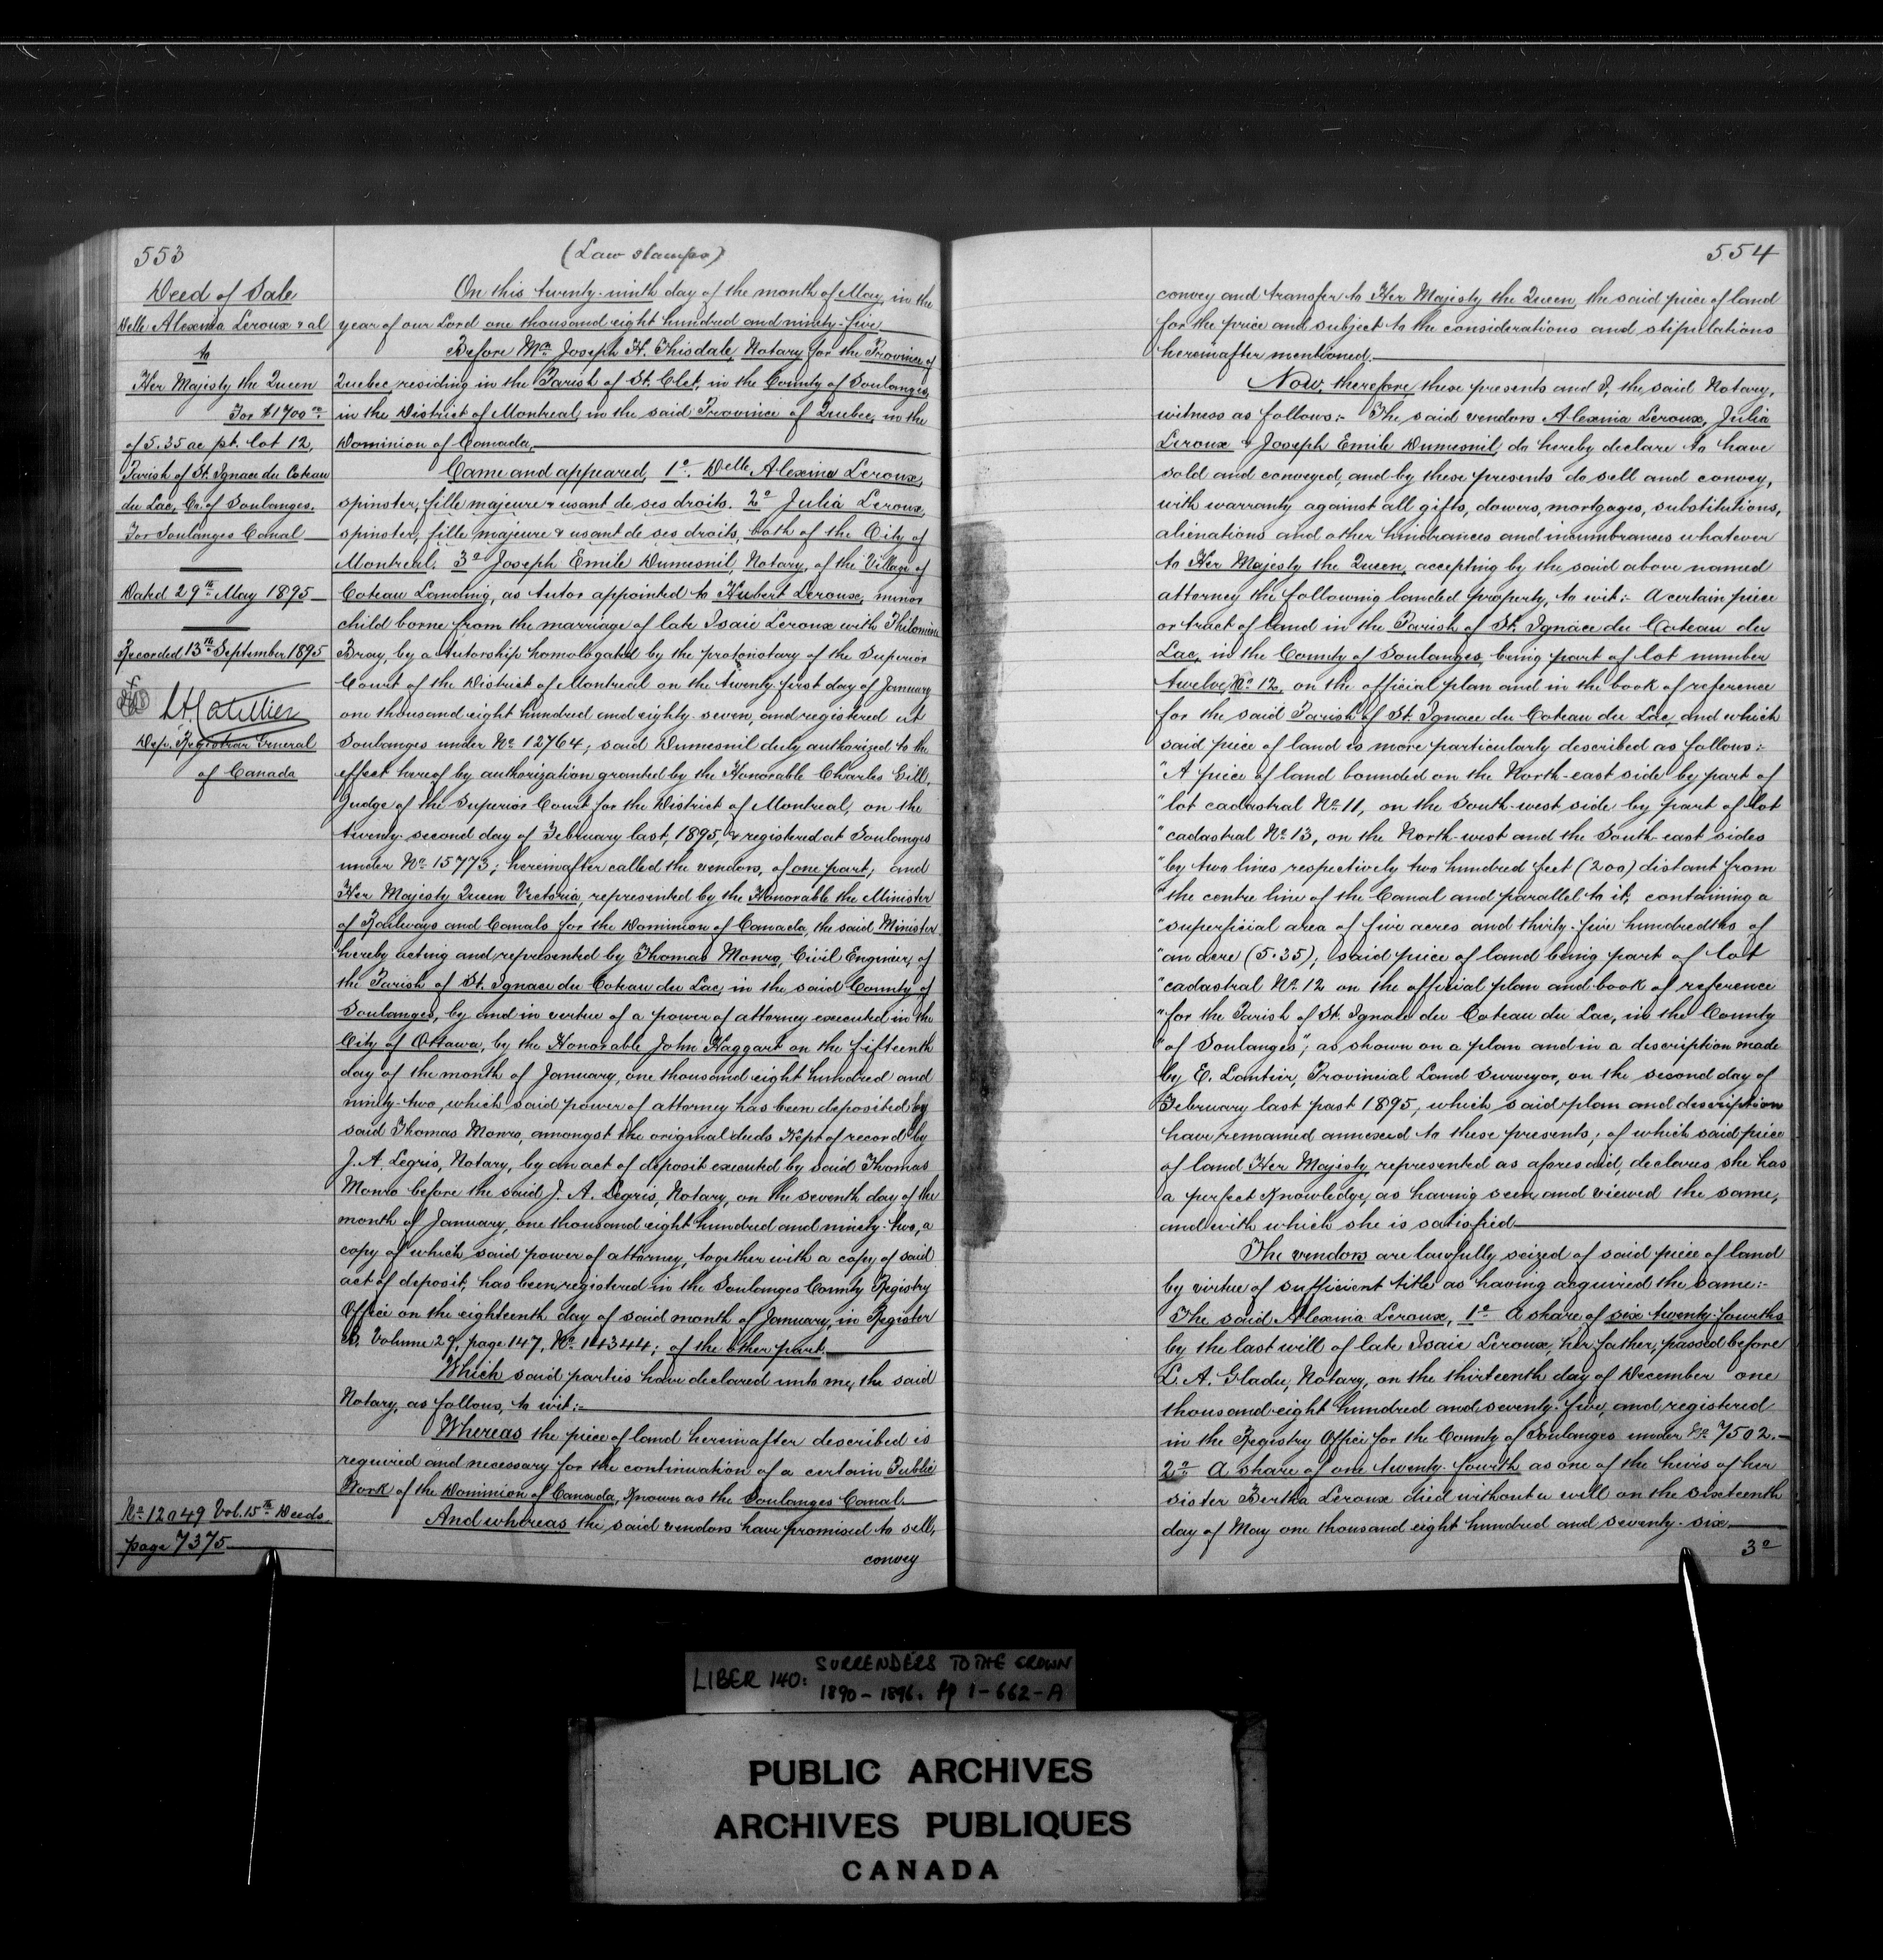 553
Deed of Sale
Delle Alexina Leroux & al
to
Her Majesty the Queen
For $1700.00
of 5.35 ac pt. lot 12,
Parish of St. Ignace du Coteau
du Lac, Co. of Soulanges.
For Soulanges Canal
Dated 29th May 1895
Recorded 13th September 1895
Dep. Registrar General
of Canada
No 12049 Vol. 15th Deeds
page 7375
(Law stamps)
On this twenty-ninth day of the month of May, in the
year of our Lord one thousand eight hundred and ninety-five
Before Mtre Joseph H. Thisdale, Notary for the Province of
Quebec residing in the Parish of St. Clet, in the County of Soulanges,
in the District of Montreal, in the said Province of Quebec, in the
Dominion of Canada,
Came and appeared, 1o. Delle Alexina Leroux,
spinster, fille majeure & usant de ses droits. 2o Julia Leroux,
spinster, fille majeure & usant de ses droits, both of the City of
Montreal. 3o Joseph Emile Dumesnil, Notary, of the Village of
Coteau Landing, as tutor appointed to Hubert Leroux, minor
child borne from the marriage of late Isaie Leroux with Philomène
Bray, by a tutorship homologated by the protonotary of the Superior
Court of the District of Montreal on the twenty first day of January
one thousand eight hundred and eighty-seven, and registered at
Soulanges under No 12764; said Dumesnil duly authorized to the
effect hereof by authorization granted by the Honorable Charles Gill,
Judge of the Superior Court for the District of Montreal, on the
twenty-second day of February last, 1895, & registered at Soulanges
under No 15773; hereinafter called the vendors, of one part; and
Her Majesty Queen Victoria, represented by the Honorable the Minister
of Railways and Canals for the Dominion of Canada, the said Minister
hereby acting and represented by Thomas Monro, Civil Engineer, of
the Parish of St. Ignace du Coteau du Lac, in the said County of
Soulanges, by and in vertue of a power of attorney executed in the
City of Ottawa, by the Honorable John Haggart on the fifteenth
day of the month of January, one thousand eight hundred and
ninety-two, which said power of attorney has been deposited by
said Thomas Monro, amongst the original deeds Kept of record by
J. A. Legris, Notary, by an act of deposit executed by said Thomas
Monro before the said J. A. Legris, Notary, on the seventh day of the
month of January, one thousand eight hundred and ninety-two, a
copy of which said power of attorney, together with a copy of said
act of deposit, has been registered in the Soulanges County Registry
Office on the eighteenth day of said month of January, in Register
B, Volume 29, page 147, No 14344; of the other part.
Which said parties have declared unto me, the said
Notary, as follows, to wit:-
Whereas the piece of land hereinafter described is
required and necessary for the continuation of a certain Public
Work of the Dominion of Canada, Known as the Soulanges Canal.
And whereas the said vendors have promised to sell,
convey
554
convey and transfer to Her Majesty the Queen, the said piece of land
for the price and subject to the considerations and stipulations
hereinafter mentioned.
Now, therefore, these presents and I, the said Notary,
witness as follows:- The said vendors Alexina Leroux, Julia
Leroux & Joseph Emile Dumesnil, do hereby declare to have
sold and conveyed, and by these presents do sell and convey,
with warranty against all gifts, dowers, mortgages, substitutions,
alienations and other hindrances and incumbrances whatever
to Her Majesty the Queen, accepting by the said above named
attorney the following landed property, to wit:- A certain piece
or tract of land in the Parish of St. Ignace du Coteau du
Lac, in the County of Soulanges, being part of lot number
twelve, No 12, on the official plan and in the book of reference
for the said Parish of St. Ignace du Coteau du Lac, and which
said piece of land is more particularly described as follows:-
"A piece of land bounded on the North-east side by part of
"lot cadastral No 11, on the South-west side by part of lot
"cadastral No 13, on the North-west and the South-east sides
"by two lines respectively two hundred feet (200) distant from
"the centre line of the Canal and parallel to it, containing a
"superficial area of five acres and thirty-five hundredths of
"an acre (5.35); said piece of land being part of lot
"cadastral No 12 on the official plan and book of reference
"for the Parish of St. Ignace du Coteau du Lac, in the County
"of Soulanges"; as shown on a plan and in a description made
by E. Lantier, Provincial Land Surveyor, on the second day of
February last past 1895, which said plan and description
have remained annexed to these presents; of which said piece
of land Her Majesty, represented as aforesaid, declares she has
a perfect Knowledge, as having seen and viewed the same,
and with which she is satisfied
The vendors are lawfully seized of said piece of land
by virtue of sufficient title as having acquired the same:-
The said Alexina Leroux, 1o A share of six twenty-fourths
by the last will of late Isaie Leroux, her father, passed before
L. A. Gladu, Notary, on the thirteenth day of December one
thousand eight hundred and seventy-five, and registered
in the Registry Office for the County of Soulanges under No 7502.
2o A share of one twenty-fourth as one of the heirs of her
sister Bertha Leroux died without a will on the sixteenth
day of May one thousand eight hundred and seventy-six
3o
LIBER 140: SURRENDERS TO THE CROWN
1890-1896. pp 1-662-A
PUBLIC ARCHIVES
ARCHIVES PUBLIQUES
CANADA